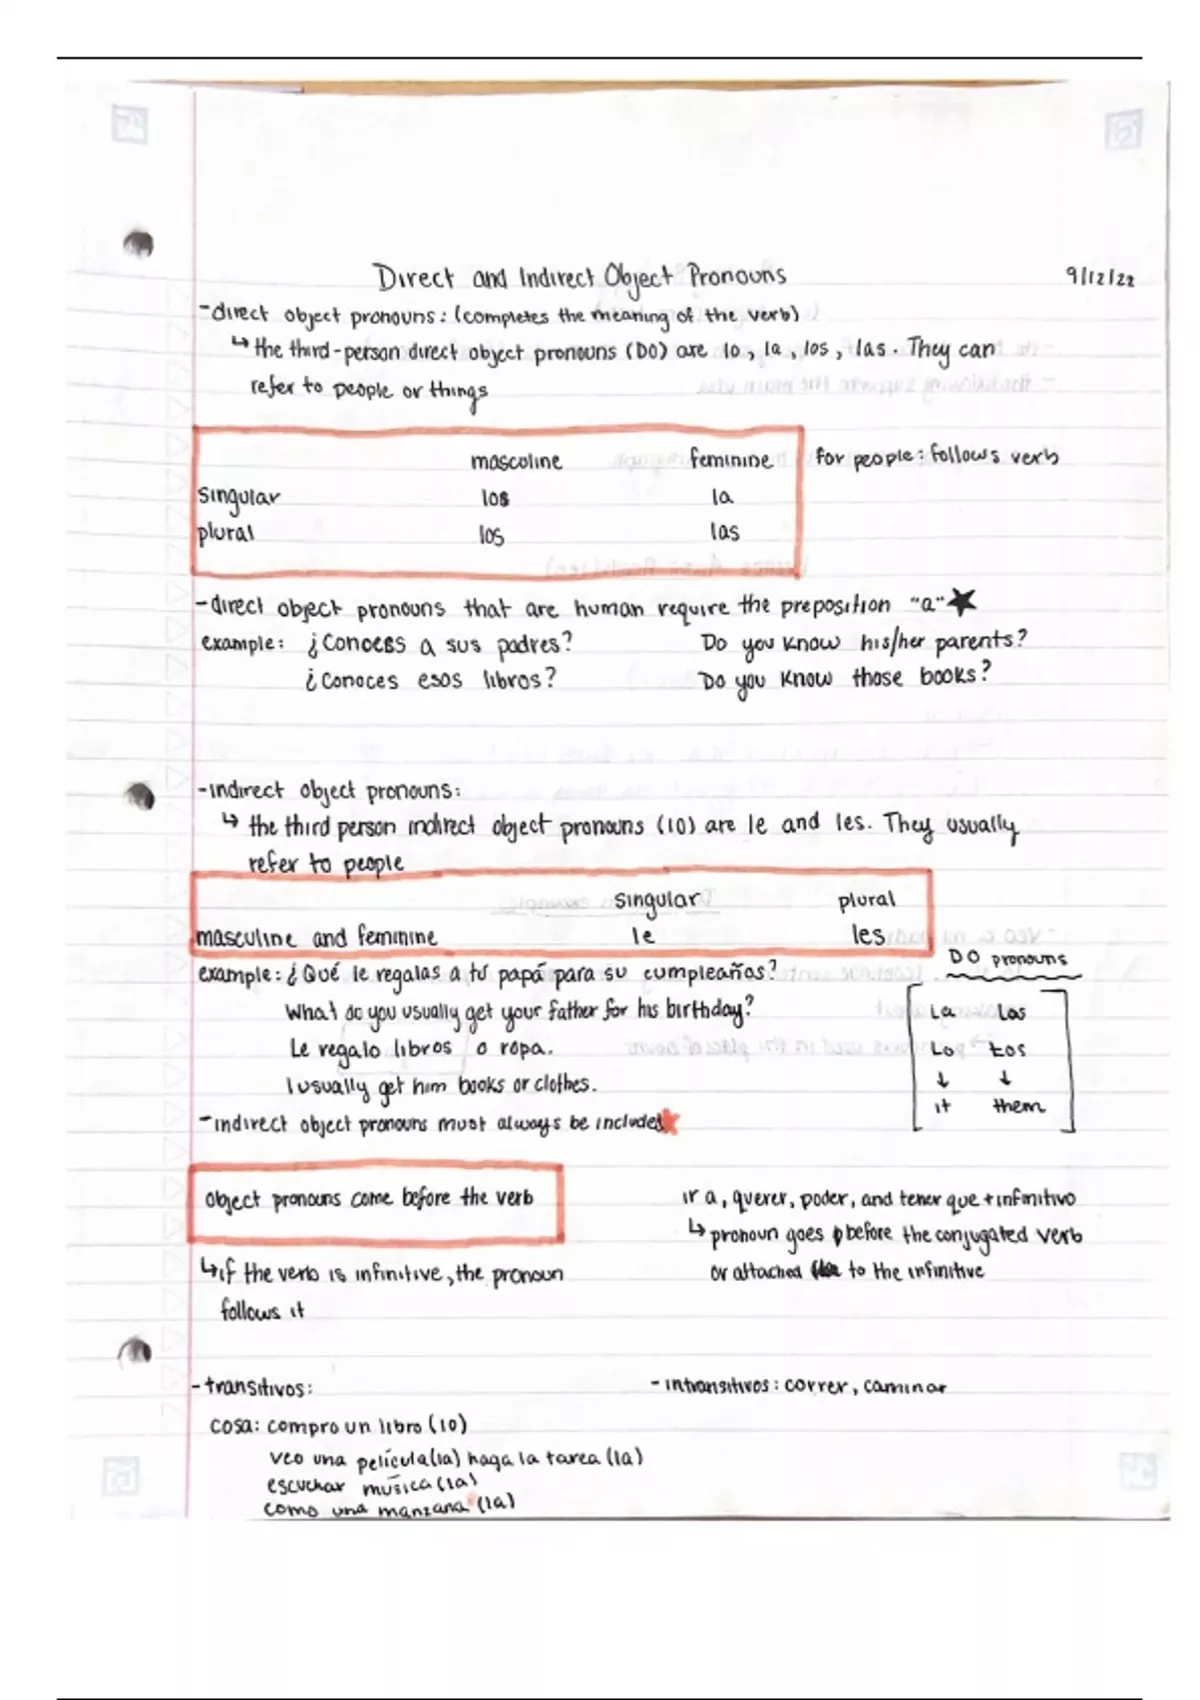 Direct and Indirect Object Pronouns 9/12/22
-direct object pronouns: (completes the meaning of the verb)
↳ the third-person direct object pronouns (DO) are lo, la, los, las. They can
refer to people or things
mascoline feminine for people: follows verb
singular los la
plural los las
-direct object pronouns that are human require the preposition "a" ★
example: ¿Conoces a sus padres? Do you know his/her parents?
¿Conoces esos libros? Do you know those books?
-indirect object pronouns:
↳ the third person indirect object pronouns (IO) are le and les. They usually
refer to people
singular plural
masculine and feminine le les
example: ¿Qué le regalas a tú papá para su cumpleaños? DO pronouns
What do you usually get your father for his birthday? La Las
Le regalo libros o ropa. Lo Los
I usually get him books or clothes. ↓ ↓
it them
-indirect object pronouns must always be included
object pronouns come before the verb
↳ if the verb is infinitive, the pronoun
follows it
ir a, querer, poder, and tener que + infinitivo
↳ pronoun goes before the conjugated verb
or attached to the infinitive
-transitivos: -intransitivos: correr, caminar
cosa: compro un libro (lo)
veo una película (la) haga la tarea (la)
escuchar música (la)
como una manzana (la)